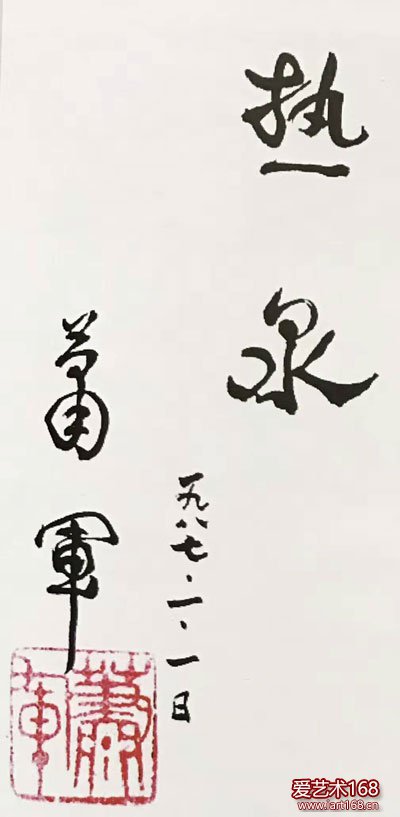 热泉
一九八七·一·一日
萧軍
蕭軍
爱艺术168
www.iart168.cn